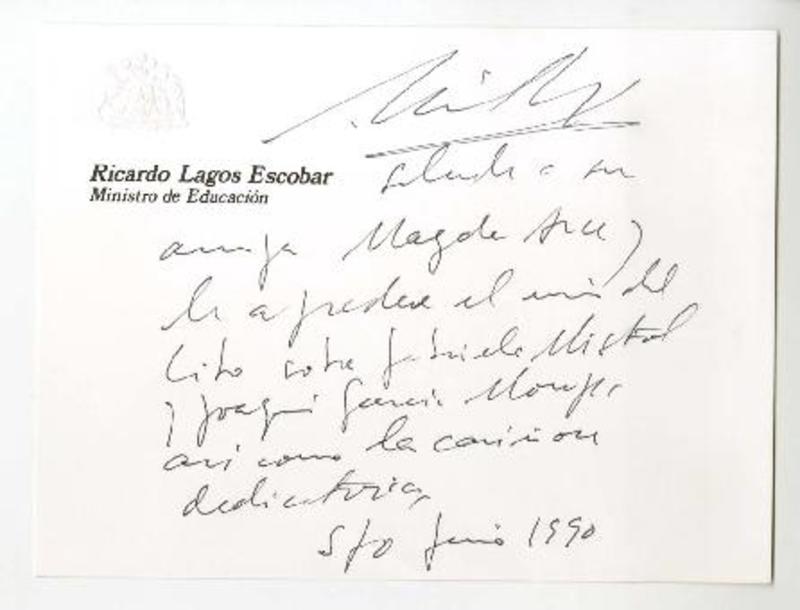 Ricardo Lagos Escobar
Ministro de Educación
saluda a su
amiga Magda Arce y
le agradece el envío del
libro sobre Gabriela Mistral
y Joaquín García Monge,
así como la cariñosa
dedicatoria,
Stgo Junio 1990